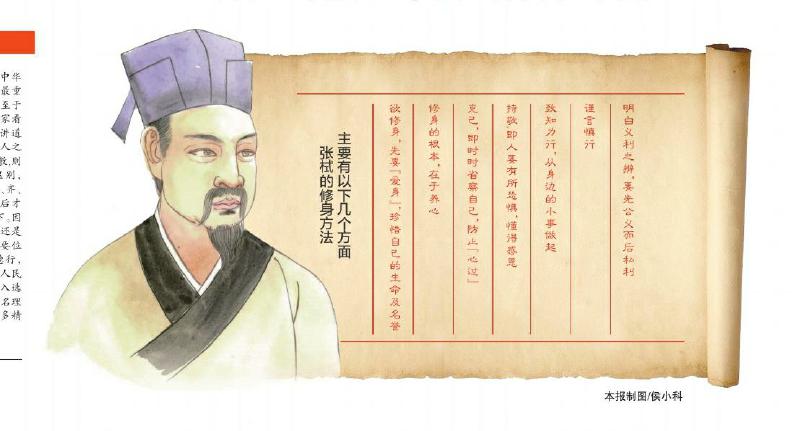 中华
最重
至于
家看
讲道
人之
则
别,
、齐、
后才
因
还是
要位
行,
人民
入选
名理
多精
张栻的修身方法
主要有以下几个方面
欲修身,先要『爱身』,珍惜自己的生命及名誉
修身的根本,在于养心
克己,即时时省察自己,防止『心过』
持敬,即人要有所恐惧,懂得感恩
致知力行,从身边的小事做起
谨言慎行
明白义利之辨,要先公义而后私利
本报制图/侯小科